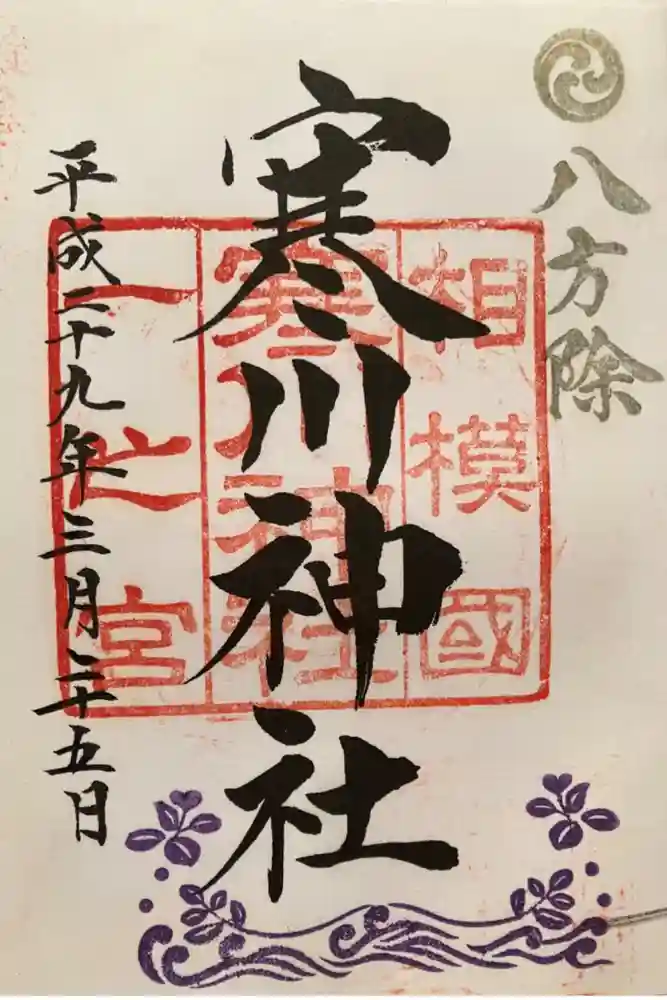 八方除
相模國
寒川神社
一之宮
寒川神社
平成二十九年三月二十五日